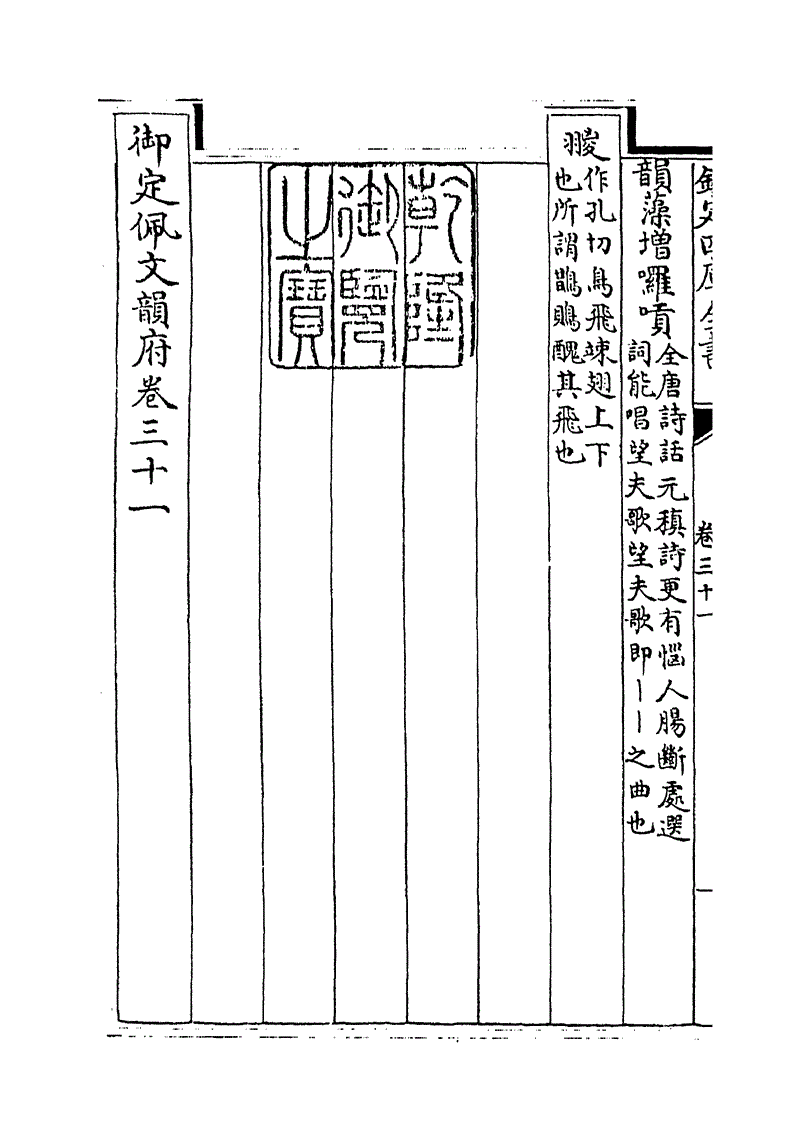 欽定四庫全書
卷三十一
韻藻增囉嗊全唐詩話元稹詩更有惱人腸斷處選
詞能唱望夫歌望夫歌即丨丨之曲也
翪作孔切鳥飛竦翅上下
也所謂鵲鵙醜其飛也
乾隆
御覽
之寶
御定佩文韻府卷三十一